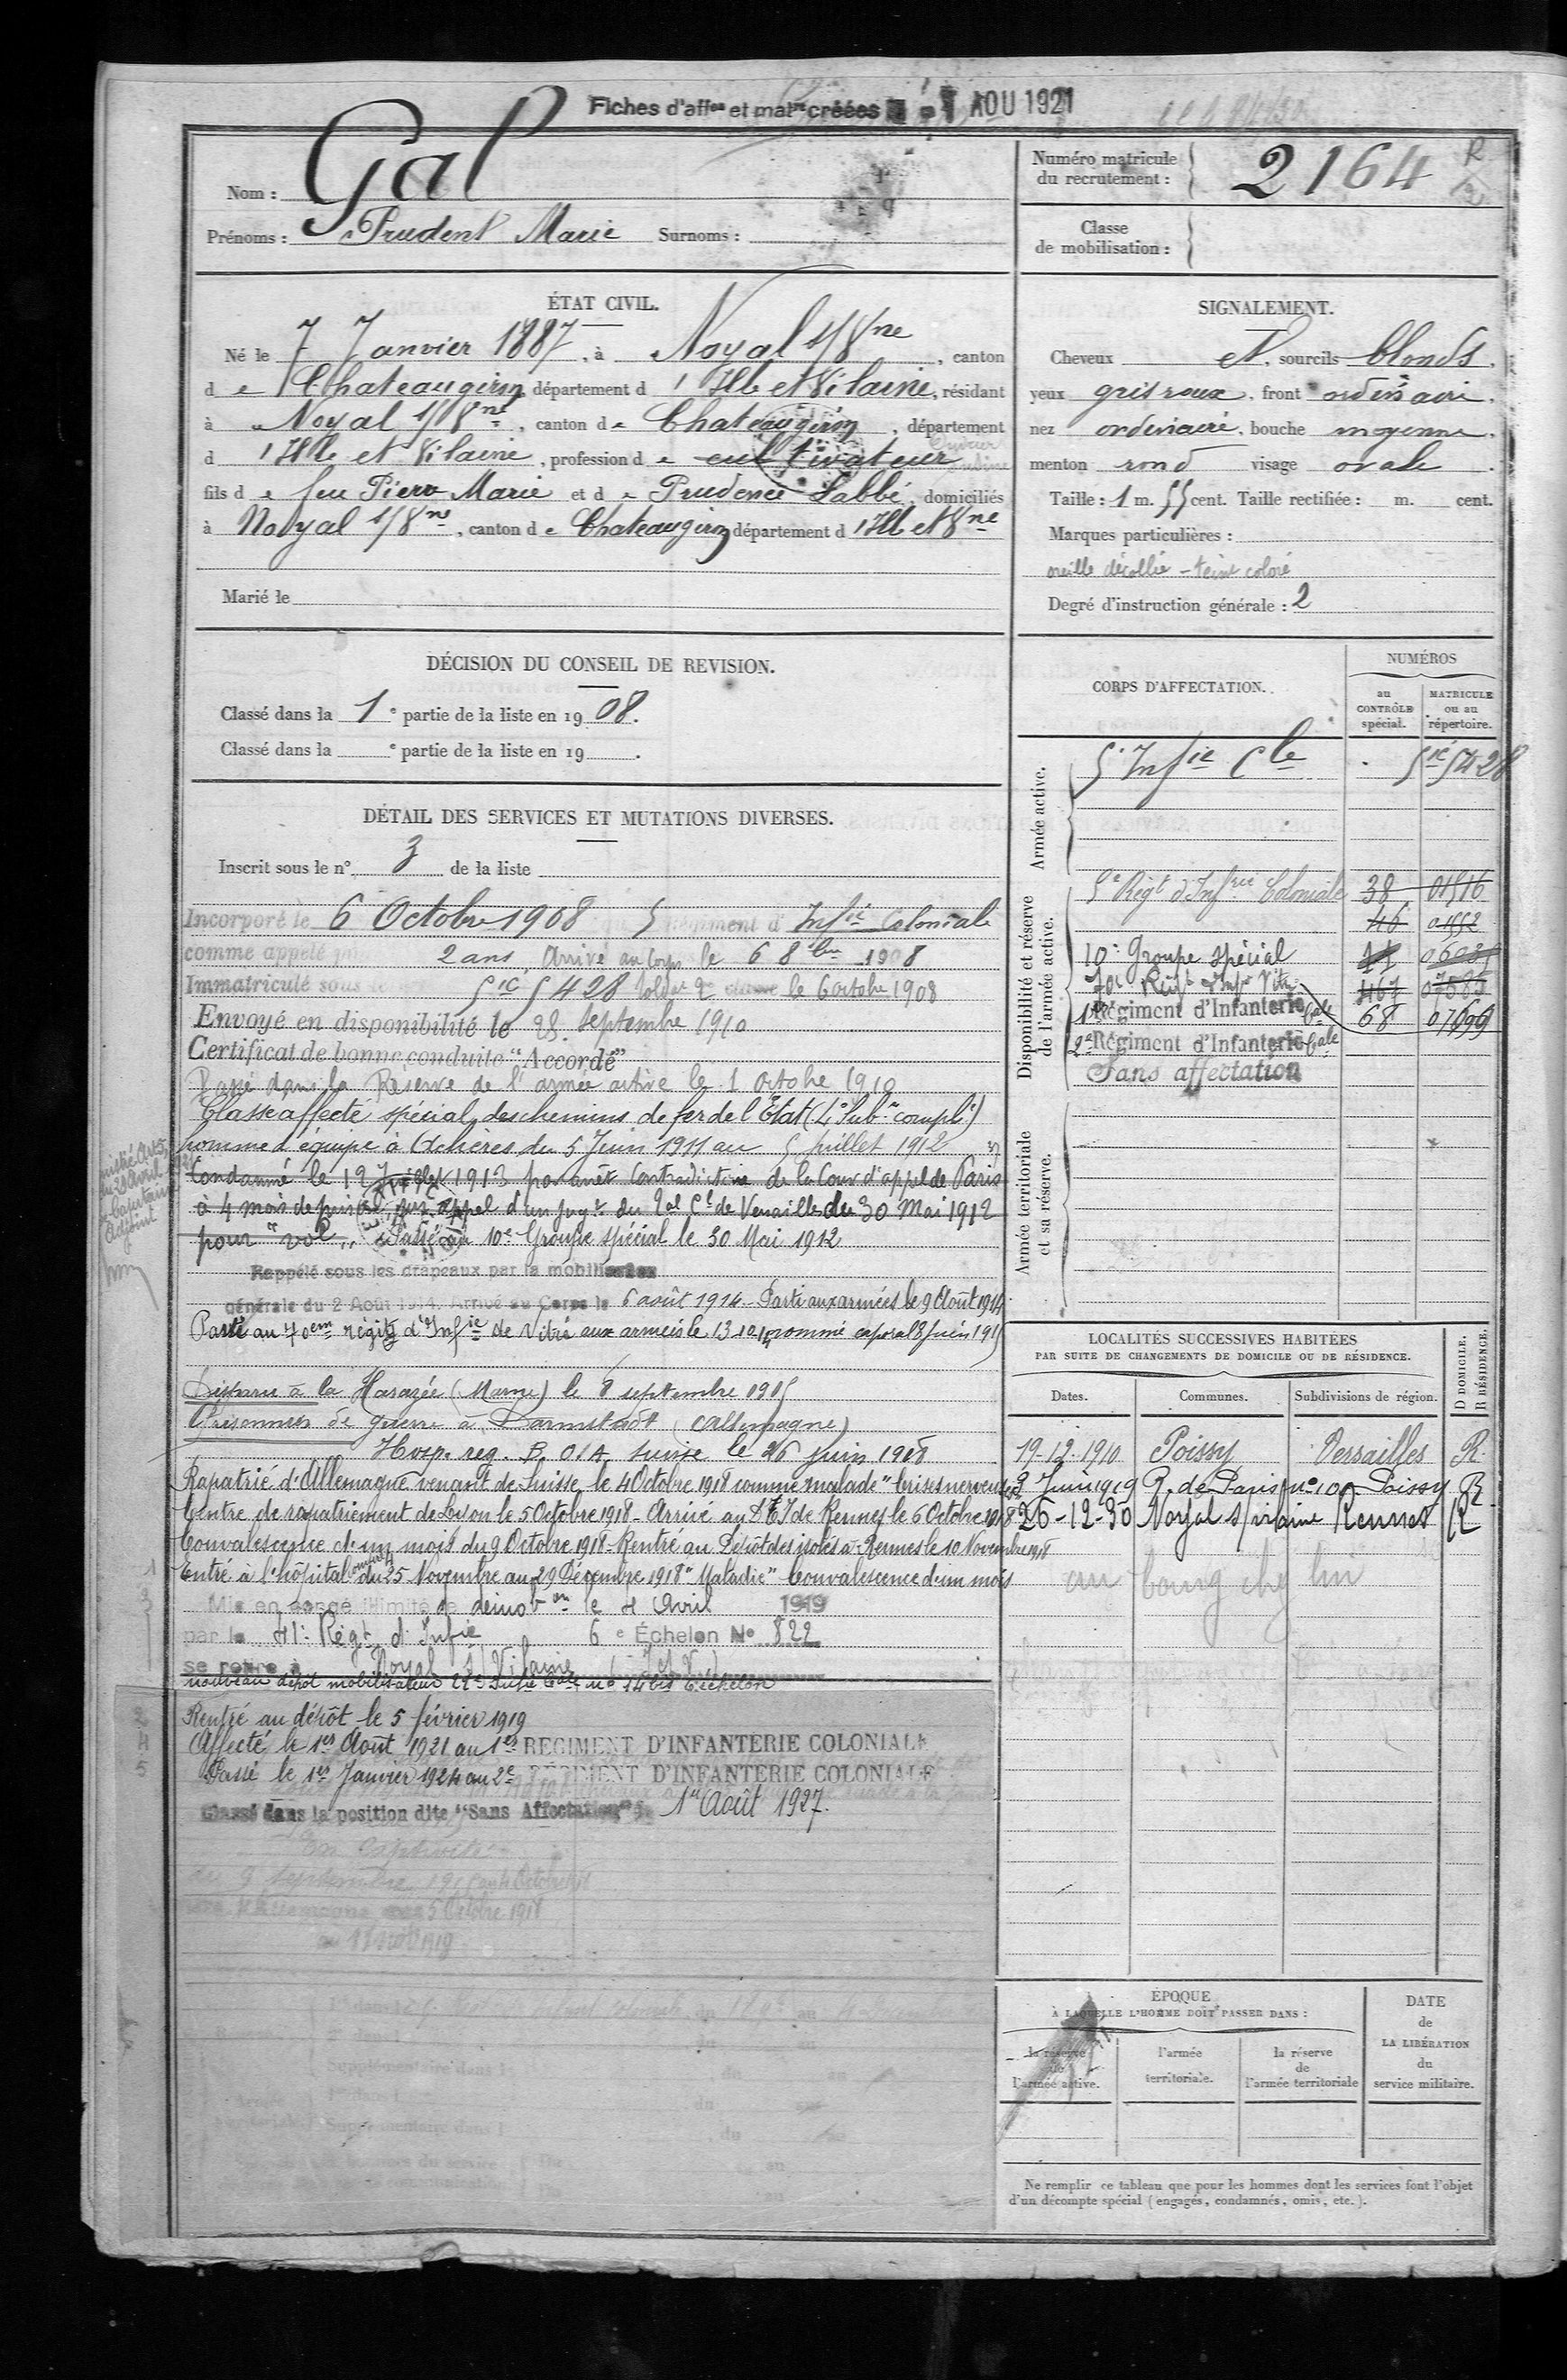 Fiches d'aff^on et mat^re créées AOU 1921
Nom : Gal
Prénoms : Prudent Marie Surnoms :
Numéro matricule du recrutement : 2164
Classe de mobilisation :
ÉTAT CIVIL.
Né le 7 Janvier 1887, à Noyal s/Vne, canton
de Chateaugiron, département d'Ille et Vilaine, résidant
à Noyal s/Vne, canton de Chateaugiron, département
d'Ille et Vilaine, profession de cultivateur
fils de feu Pierre Marie et de Prudence Labbé, domiciliés
à Noyal s/Vne, canton de Chateaugiron département d'Ille et Vne
Marié le
SIGNALEMENT.
Cheveux et, sourcils blonds.
yeux gris roux, front ordinaire,
nez ordinaire, bouche moyenne,
menton rond visage ovale.
Taille : 1 m. 55 cent. Taille rectifiée : m. cent.
Marques particulières :
oreille décollée - teint coloré
Degré d'instruction générale : 2
DÉCISION DU CONSEIL DE REVISION.
Classé dans la 1e partie de la liste en 1908.
Classé dans la e partie de la liste en 19 .
DÉTAIL DES SERVICES ET MUTATIONS DIVERSES.
Inscrit sous le n° 3 de la liste
Incorporé le 6 Octobre 1908 5 Régiment d'Infie Coloniale
comme appelé 2 ans Arrivé au Corps le 6 8bre 1908
Immatriculé sous le 5ie 5428 soldat 2e classe le 6 octobre 1908
Envoyé en disponibilité le 25 septembre 1910
Certificat de bonne conduite "Accordé"
Passé dans la Réserve de l'armée active le 1 octobre 1910
Classé affecté spécial des chemins de fer de l'État (4e Subon compl.)
homme d'équipe à Achères du 5 Juin 1911 au 5 Juillet 1912
Condamné le 12 Juillet 1913 par arrêt Contradictoire de la Cour d'appel de Paris
à 4 mois de prison sur appel d'un jugt du Bal Cl de Versailles du 30 Mai 1912
pour "vol" Passé au 10e Groupe spécial le 30 Mai 1912
Rappelé sous les drapeaux par la mobilisation
générale du 2 Août 1914. Arrivé au Corps le 6 août 1914 - Parti aux armées le 9 Août 1914
Passé au 70em régit d'Infie de Vitré aux armées le 13-10-14 nommé caporal 8 Juin 1915
Disparu à la Harazée (Marne) le 8 septembre 1915
Prisonnier de guerre à Darmstadt (Allemagne)
Hosp. reg. B. OIA suisse le 26 juin 1918
Rapatrié d'Allemagne venant de Suisse le 4 Octobre 1918 comme malade "Crises nerveuses"
Centre de rapatriement de Lyon le 5 Octobre 1918 - Arrivé au D I de Rennes le 6 Octobre 1918
Convalescence d'un mois du 9 Octobre 1918 - Rentré au Dépôt des isolés à Rennes le 10 Novembre 1918
Entré à l'hôpital du 25 Novembre au 29 Décembre 1918 "Maladie" Convalescence d'un mois
Mis en congé illimité de démobon le 4 Avril 1919
par le 41e Régt d'Infie 6e Échelon No 822
se retire à Noyal s/Vilaine (I et V)
nouveau dépôt mobilisateur 22e Infie Cale no 14bis Échelon
Rentré au dépôt le 5 février 1919
Affecté le 1er Août 1921 au 1er RÉGIMENT D'INFANTERIE COLONIALE
Passé le 1er Janvier 1924 au 2e RÉGIMENT D'INFANTERIE COLONIALE
Classé dans la position dite "Sans Affectation" 1er Août 1927.
CORPS D'AFFECTATION.
NUMÉROS
au CONTRÔLE spécial.
MATRICULE ou au répertoire.
Armée active.
5e Infie Cle 5ie 5428
Disponibilité et réserve de l'armée active.
5e Régt d'Infrie Coloniale 38 01516
46 01552
10e Groupe spécial
70e Régt d'Infie Vitré 467
1er Régiment d'Infanterie Cale 68 07699
2e Régiment d'Infanterie Cale
Sans affectation
Armée territoriale et sa réserve.
LOCALITÉS SUCCESSIVES HABITÉES
PAR SUITE DE CHANGEMENTS DE DOMICILE OU DE RÉSIDENCE.
Dates. Communes. Subdivisions de région. D DOMICILE. R RÉSIDENCE.
19-12-1910 Poissy Versailles R.
2 Juin 1919 R. de Paris n° 100 Poissy R
26-12-30 Noyal s/vilaine Rennes R
au bourg
ÉPOQUE
À LAQUELLE L'HOMME DOIT PASSER DANS :
la réserve de l'armée active.
l'armée territoriale.
la réserve de l'armée territoriale
DATE de LA LIBÉRATION du service militaire.
Ne remplir ce tableau que pour les hommes dont les services font l'objet
d'un décompte spécial (engagés, condamnés, omis, etc.).